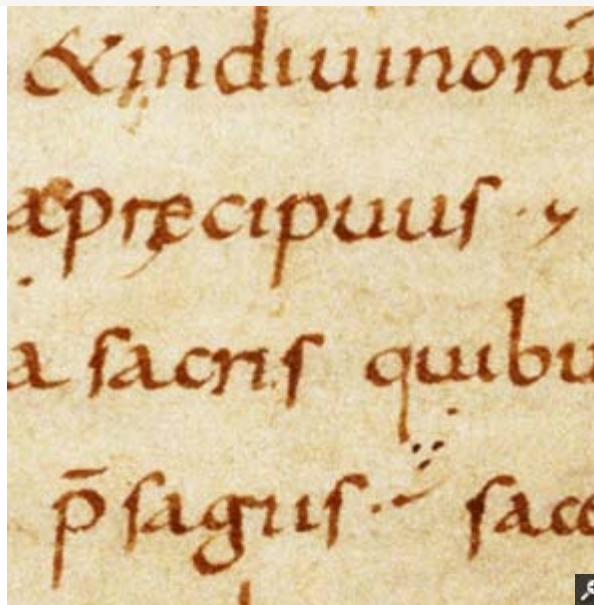 &indiuinorū
apręcipuus
a sacris quibu
p̄sagus sace